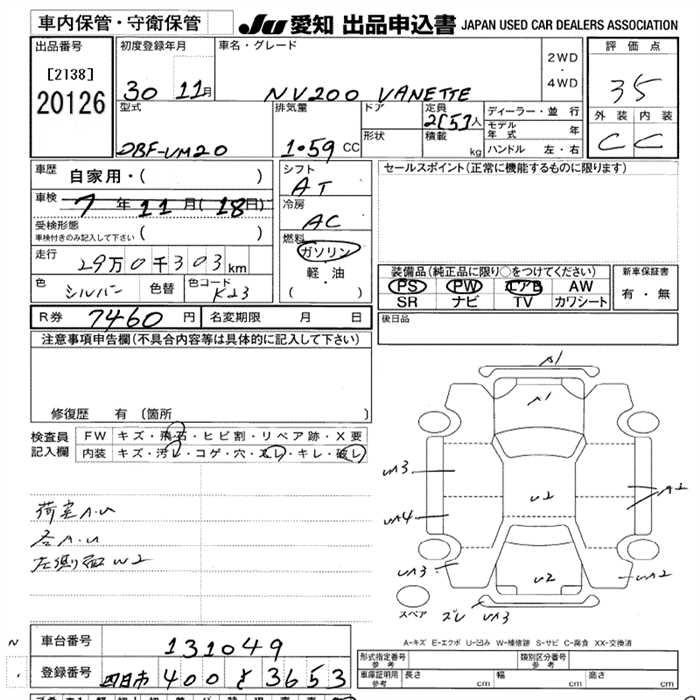 車内保管・守衛保管
JU 愛知 出品申込書 JAPAN USED CAR DEALERS ASSOCIATION
出品番号
[2138]
20126
初度登録年月
30 11月
車名・グレード
NV200 VANETTE
2WD
・
4WD
評価点
35
外装 内装
C C
型式
DBF-VM20
排気量
1.59 CC
ドア
形状
定員
2[5]人
積載
kg
ディーラー・並行
モデル年式 年
ハンドル 左・右
車歴
自家用・( )
車検
7年11月(18日)
受検形態
車検付きのみ記入して下さい ( )
走行
29万0千303km
色
シルバー
色替
色コード
K23
シフト
AT
冷房
AC
燃料
ガソリン
軽・油
( )
セールスポイント(正常に機能するものに限ります)
装備品(純正品に限り○をつけてください)
PS PW エアB AW
SR ナビ TV カワシート
新車保証書
有・無
R券 7460円
名変期限 月 日
後日品
注意事項申告欄(不具合内容等は具体的に記入して下さい)
修復歴 有 [箇所 ]
検査員記入欄
FW キズ・飛石・ヒビ割・リペア跡・X要
内装 キズ・汚レ・コゲ・穴・スレ・キレ・破レ
荷室A.U
各A.U
左側面W2
A1
A1
UA3
UA4
UA3
U2
U2
A2
UA2
UA3
ズレ
スペア
A-キズ E-エクボ U-凹み W-補修跡 S-サビ C-腐食 XX-交換済
車台番号
131049
登録番号
四日市 400 と 3653
形式指定番号
参考
類別区分番号
参考
車庫証明用
参考
長さ cm 幅 cm 高さ cm